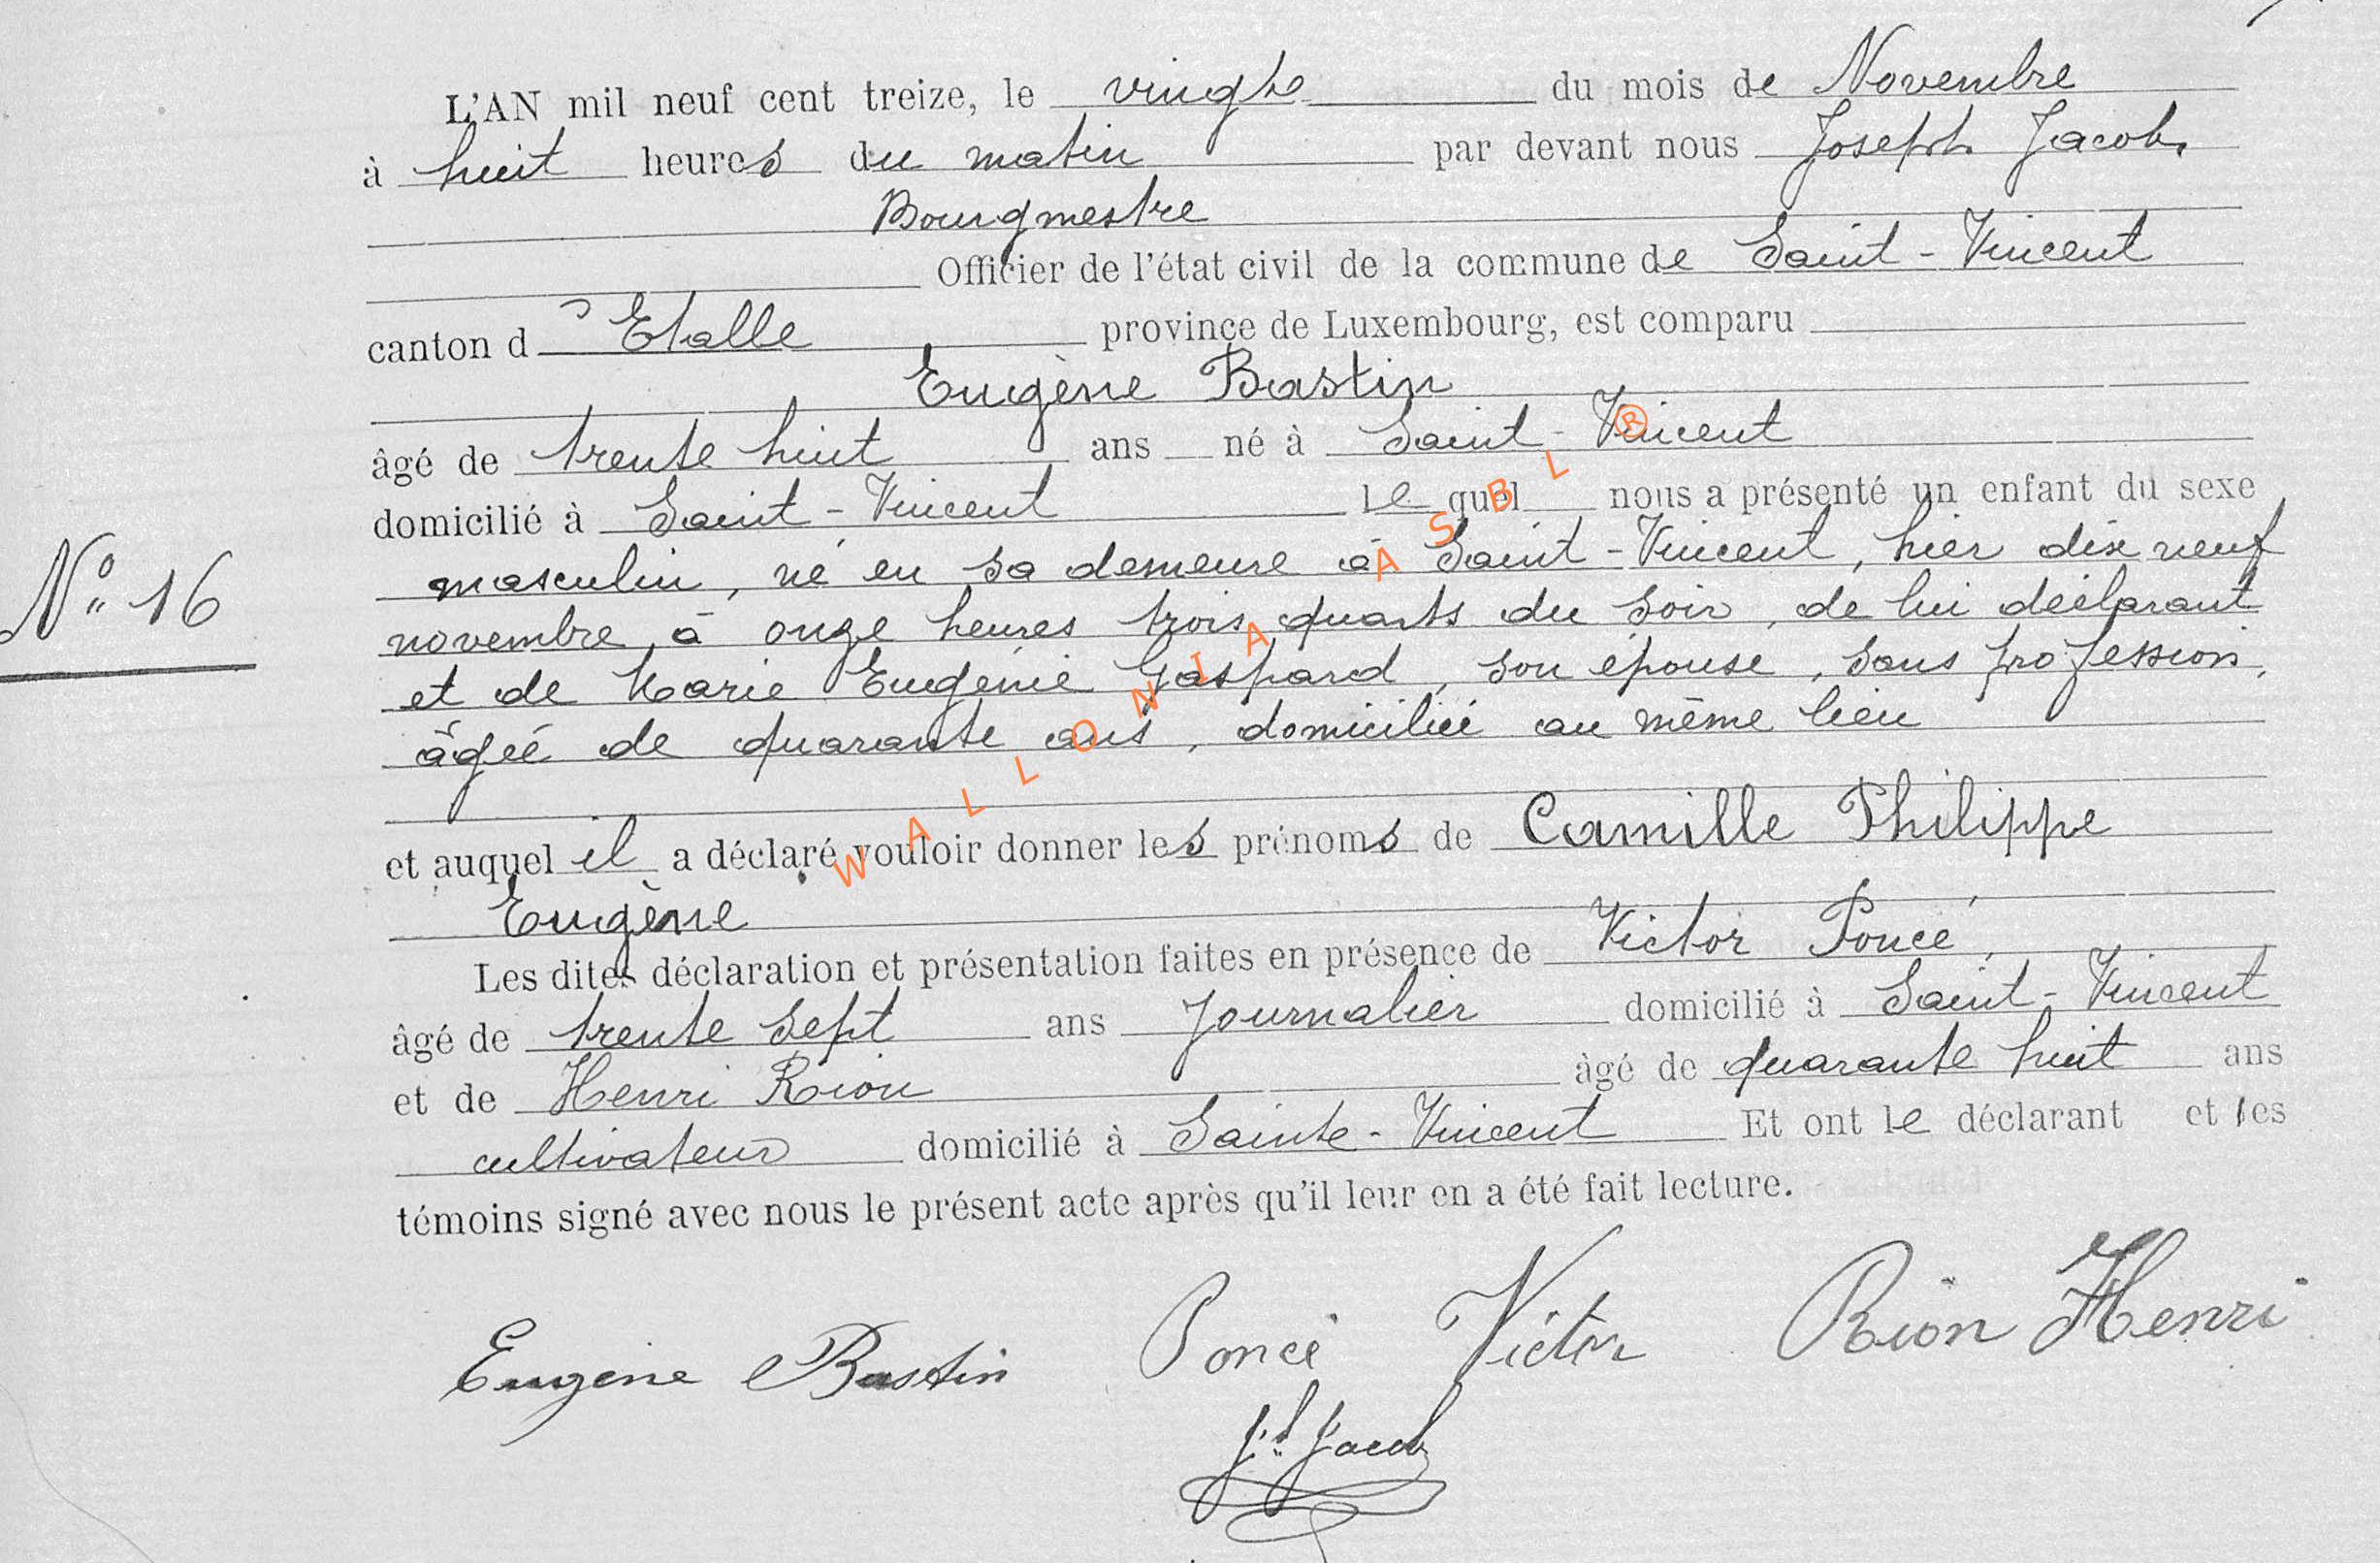 L'AN mil neuf cent treize, le vingt du mois de Novembre
à huit heures du matin par devant nous Joseph Jacob,
Bourgmestre
Officier de l'état civil de la commune de Saint-Vincent
canton d'Etalle province de Luxembourg, est comparu
Eugène Bastin
âgé de trente huit ans né à Saint-Vincent
domicilié à Saint-Vincent lequel nous a présenté un enfant du sexe
masculin, né en sa demeure à Saint-Vincent, hier dix neuf
N° 16
novembre à onze heures trois quarts du soir, de lui déclarant
et de Marie Eugénie Gaspard, son épouse, sans profession,
âgée de quarante ans, domiciliée au même lieu
et auquel il a déclaré vouloir donner les prénoms de Camille Philippe
Eugène
Les dites déclaration et présentation faites en présence de Victor Poncé,
âgé de trente sept ans Journalier domicilié à Saint-Vincent
et de Henri Rion âgé de quarante huit ans
cultivateur domicilié à Sainte-Vincent Et ont le déclarant et les
témoins signé avec nous le présent acte après qu'il leur en a été fait lecture.
Eugène Bastin Poncé Victor Rion Henri
Jh Jacob
WALLONIA ASBL ®